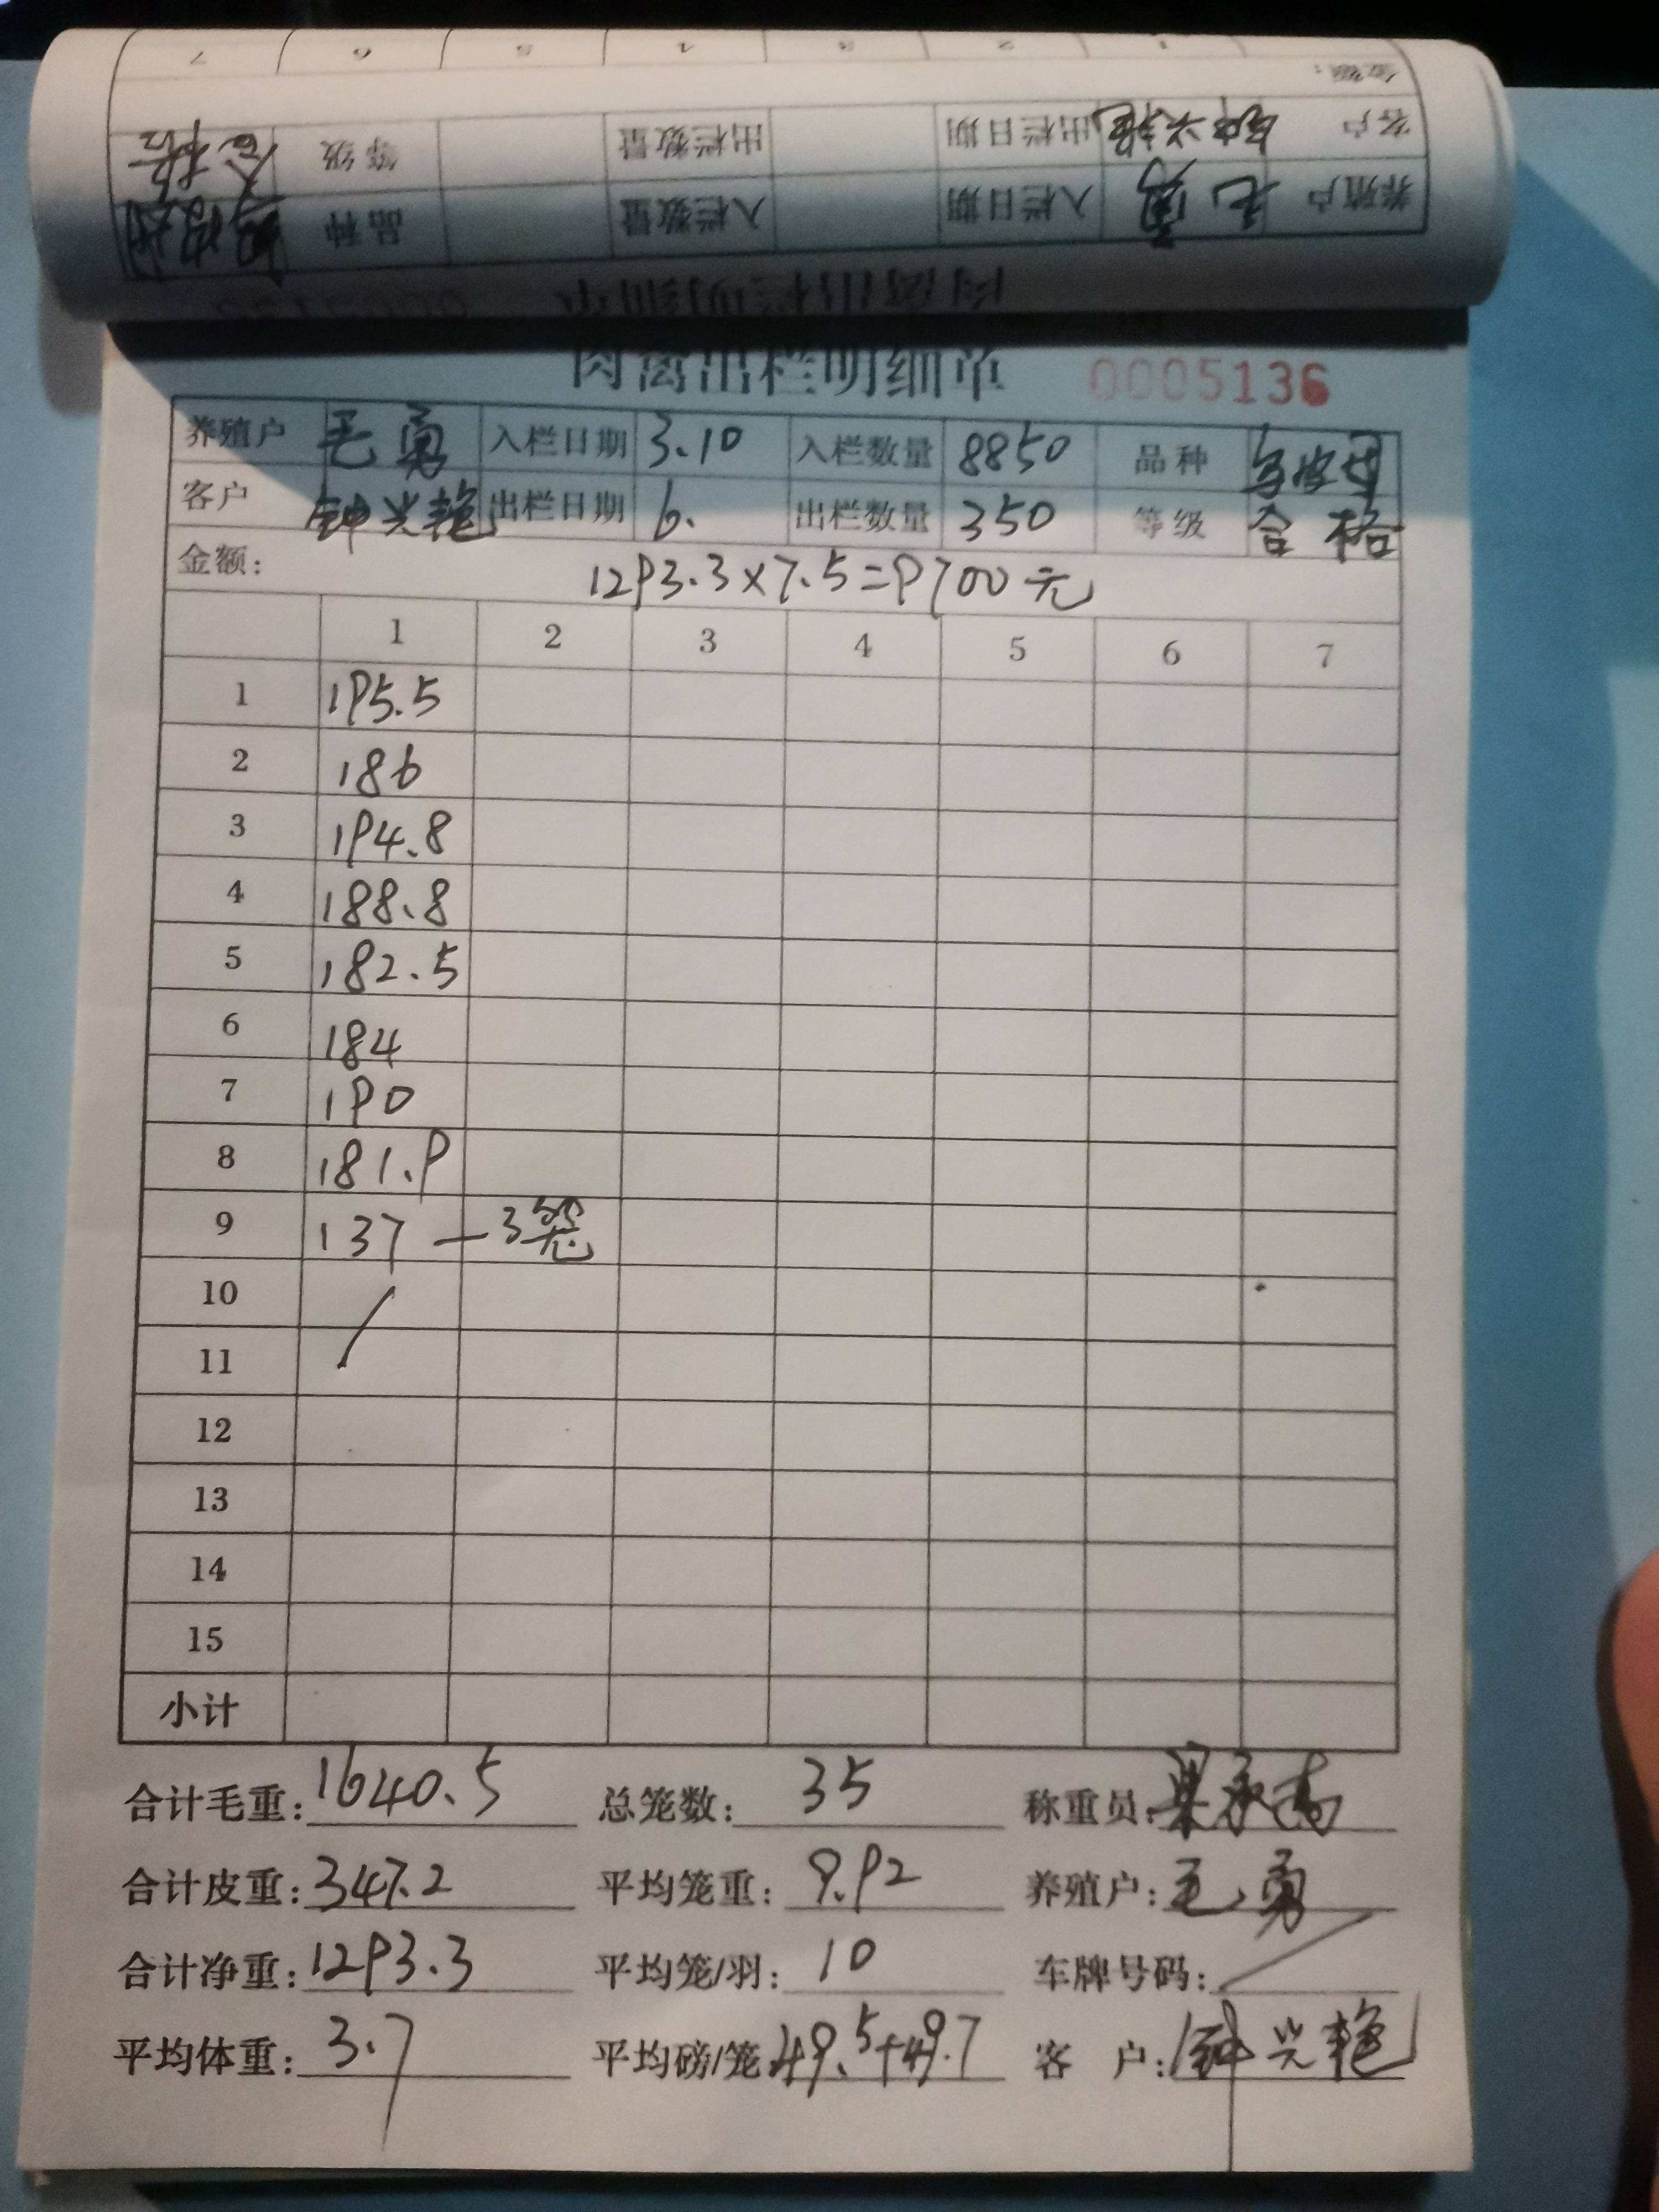 肉禽出栏明细单 0005136
养殖户 毛勇 入栏日期 3.10 入栏数量 8850 品种
客户 钟兴艳 出栏日期 6. 出栏数量 350 等级 合格
金额: 1293.3×7.5=9700元
1 2 3 4 5 6 7
1 195.5
2 186
3 194.8
4 188.8
5 182.5
6 184
7 190
8 181.9
9 137 — 3笼
10
11
12
13
14
15
小计
合计毛重: 1640.5 总笼数: 35 称重员:
合计皮重: 347.2 平均笼重: 9.92 养殖户: 毛勇
合计净重: 1293.3 平均笼/羽: 10 车牌号码:
平均体重: 3.7 平均磅/笼 49.5+49.7 客户: 钟兴艳